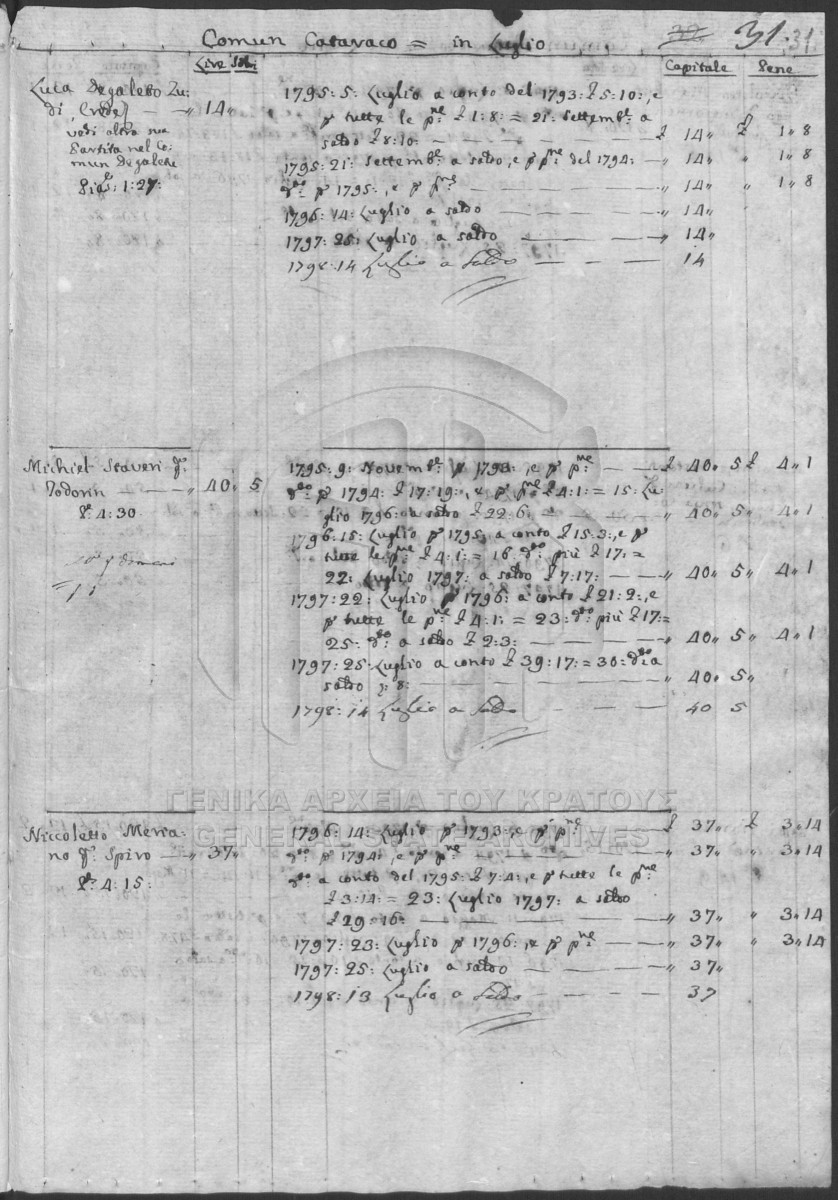 Comun Catavaco = in Luglio 32 31. 31
Lire Soldi Capitale Pene
Luca Degaleto Zu:
di, — „ 14 „
vedi altra sua
Partita nel Co:
mun Degalete
1:27:
1795: 5: Luglio a conto del 1793: £ 5:10:, e
p tutte le pne £ 1:8: = 21: Settembe: a
saldo £ 8:10: — £ 14 „ £ 1 „ 8
1795: 21: Settembe: a saldo, e p pne del 1794: — „ 14 „ „ 1 „ 8
dto p 1795:, e p pne — „ 14 „ „ 1 „ 8
1796: 14: Luglio a saldo — „ 14 „
1797: 25: Luglio a saldo — „ 14 „
1798: 14 Luglio a Saldo — 14
Michiel Staveri q:
Todorin — „ 40 „ 5
4:30
1795: 9: Novembe: p 1793:, e p pne — £ 40 „ 5 £ 4 „ 1
dto p 1794: £ 17:19:, e p pne £ 4:1: = 15: Lu:
glio 1796: a saldo £ 22:6: — „ 40 „ 5 „ 4 „ 1
1796: 15: Luglio p 1795: a conto £ 15:3:, e p
tutte le pne £ 4:1: = 16: dto: più £ 17: =
22: Luglio 1797: a saldo £ 7:17: — „ 40 „ 5 „ 4 „ 1
1797: 22: Luglio p 1796: a conto £ 21:2:, e
p tutte le pne £ 4:1: = 23: dto: più £ 17: =
25: dto: a saldo £ 2:3: — „ 40 „ 5 „ 4 „ 1
1797: 25: Luglio a conto £ 39:17: = 30: dto: a
saldo :8: — „ 40 „ 5 „
1798: 14 Luglio a Saldo — 40 5
ΓΕΝΙΚΑ ΑΡΧΕΙΑ ΤΟΥ ΚΡΑΤΟΥΣ
GENERAL STATE ARCHIVES
Niccoletto Meria:
no q: Spiro — „ 37 „
4:15:
1796: 14: Luglio p 1793:, e p pne — £ 37 „ £ 3 „ 14
dto p 1794:, e p pne — „ 37 „ „ 3 „ 14
dto a conto del 1795: £ 7:4:, e p tutte le pne
£ 3:14: = 23: Luglio 1797: a saldo
£ 29:16: — „ 37 „ „ 3 „ 14
1797: 23: Luglio p 1796:, e p pne — „ 37 „ „ 3 „ 14
1797: 25: Luglio a saldo — „ 37 „
1798: 13 Luglio a Saldo — 37